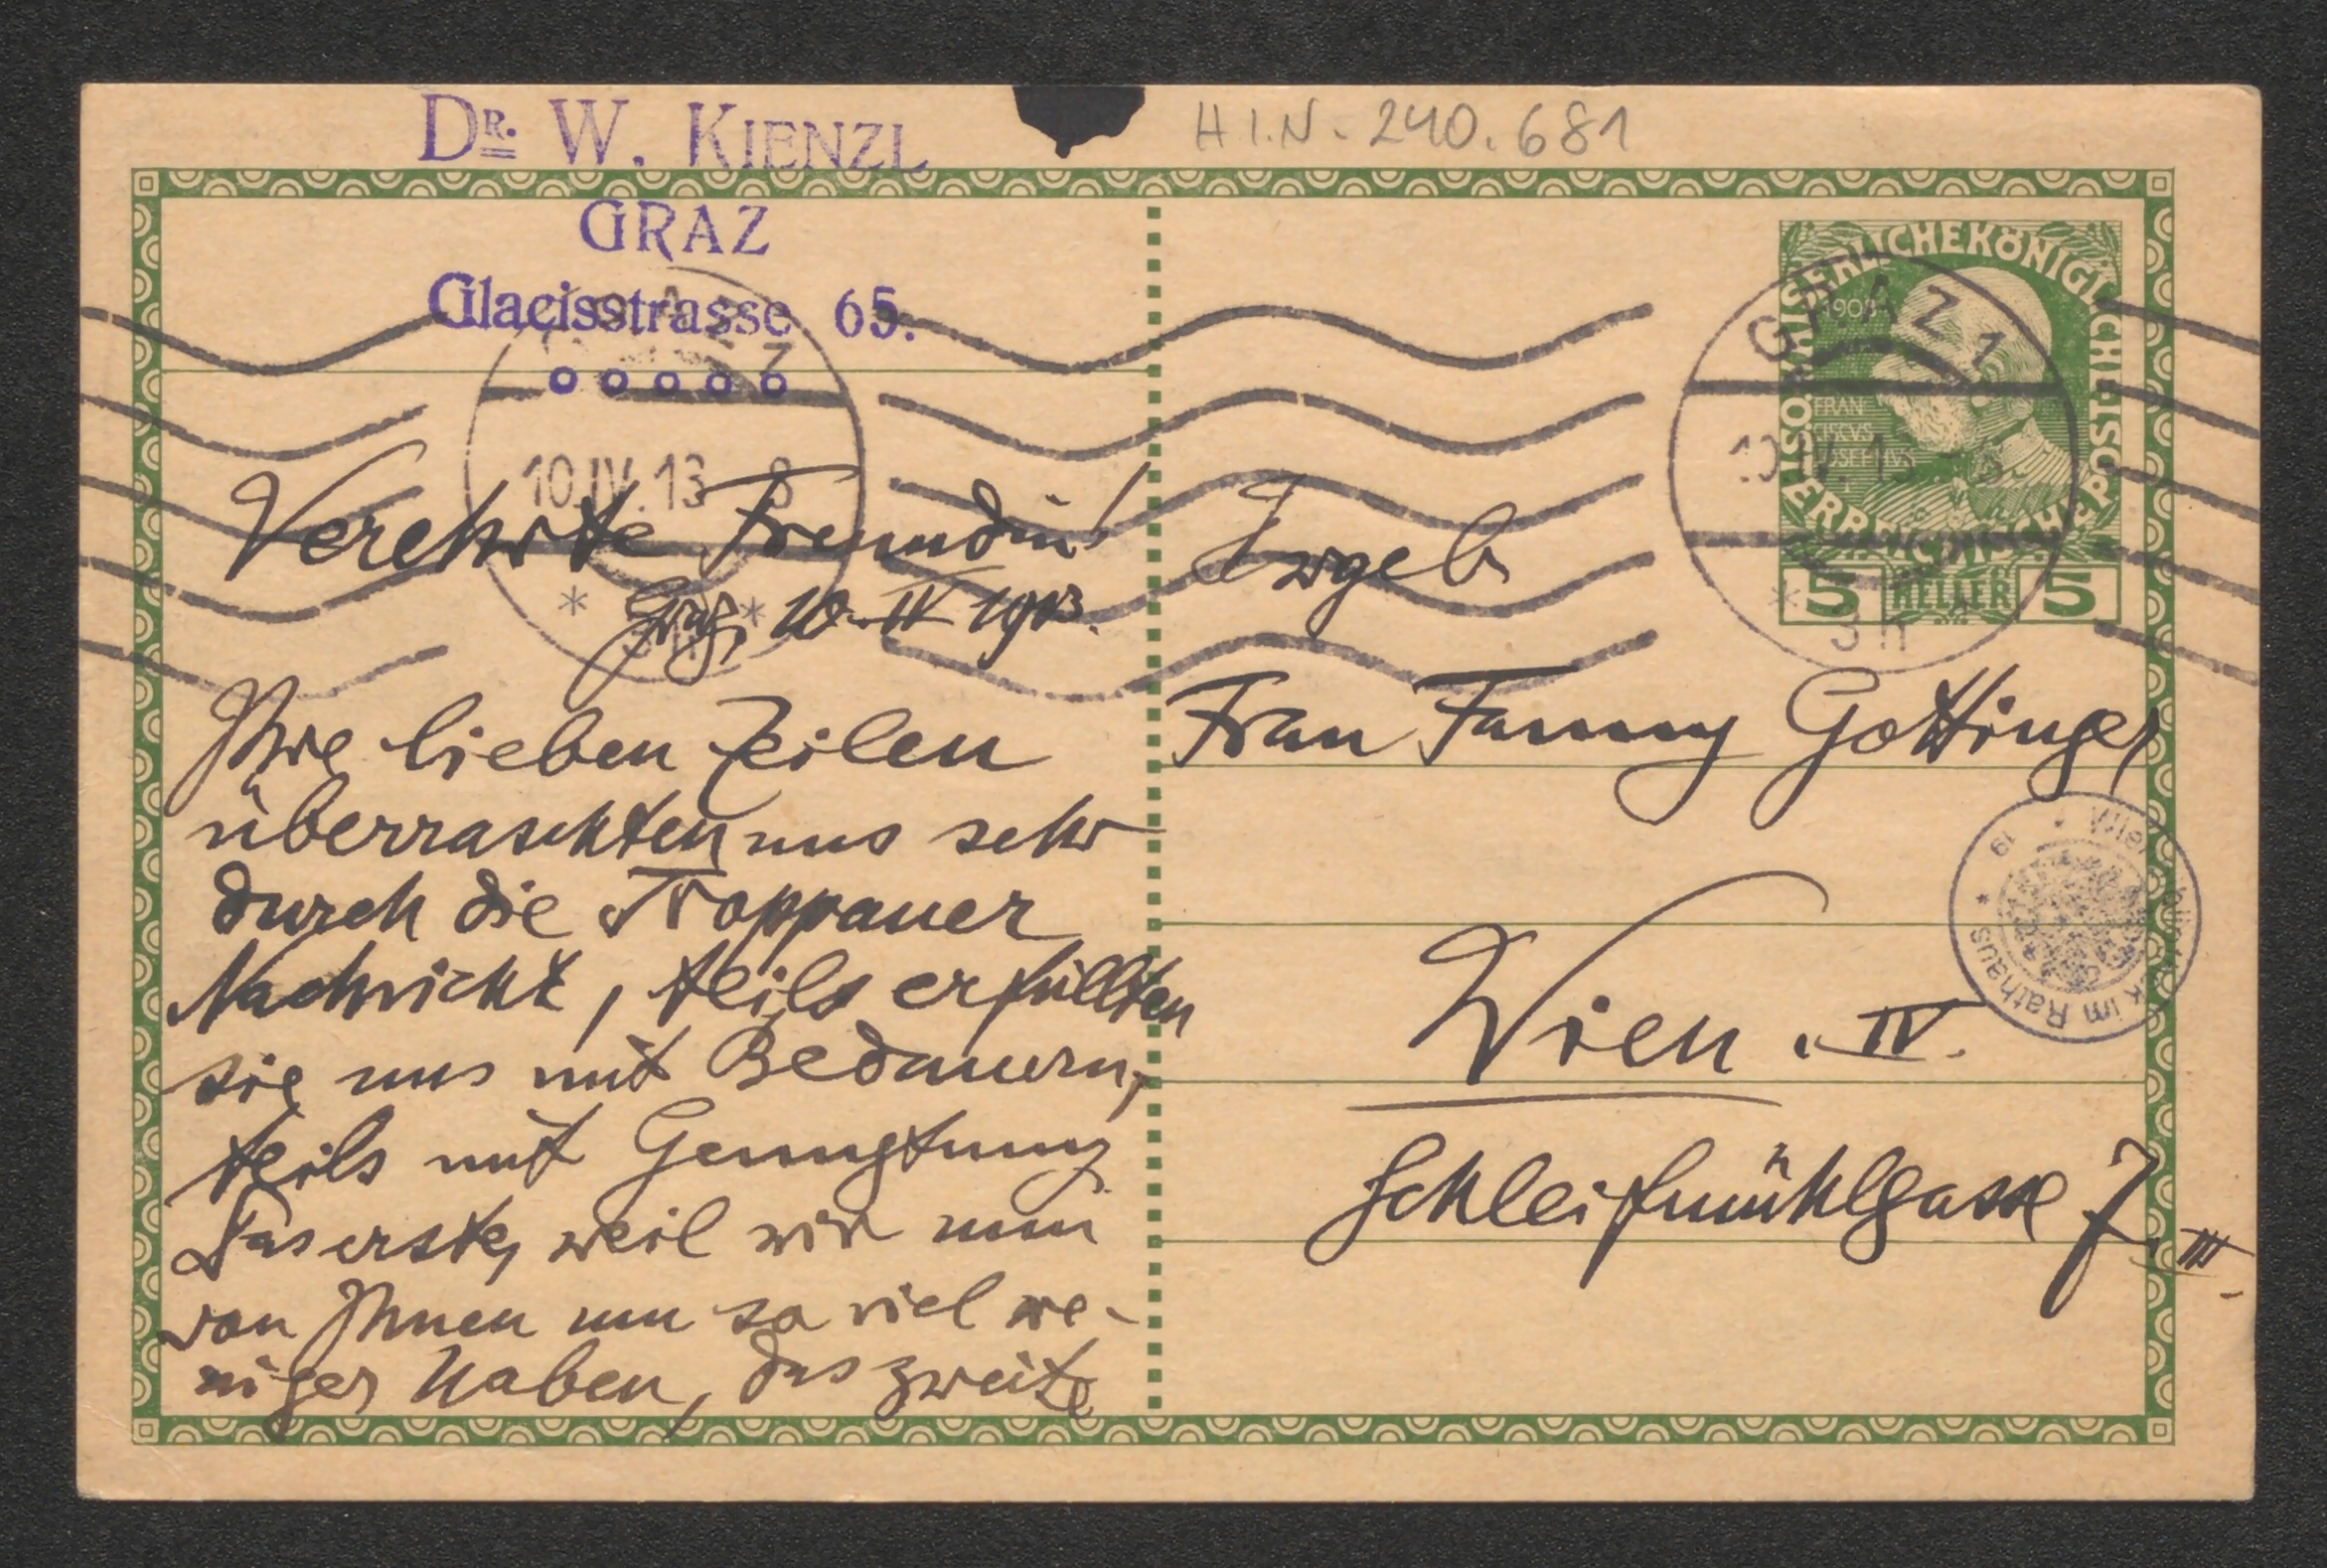 DR. W. KIENZL
GRAZ
Glacisstrasse 65.
H.I.N. - 240.681
KAISERLICHE KÖNIGLICHE ÖSTERREICHISCHE POST
1908
FRAN
CISCVS
JOSEPHVS
5 HELLER 5
GRAZ 1
10.IV.13 - 8
3h
GRAZ
10.IV.13 8
Verehrte Freundin!
Graz, 10. IV 1913.
Ihre lieben Zeilen
überraschten uns sehr
durch die Troppauer
Nachricht, teils erfüllten
sie uns mit Bedauern,
teils mit Genugtuung
Das erste, weil wir nun
von Ihnen um so viel we-
niger haben, das zweite
Frau Fanny Gottinger
Wien. IV.
Schleifmühlgasse 7. III
im Rathaus